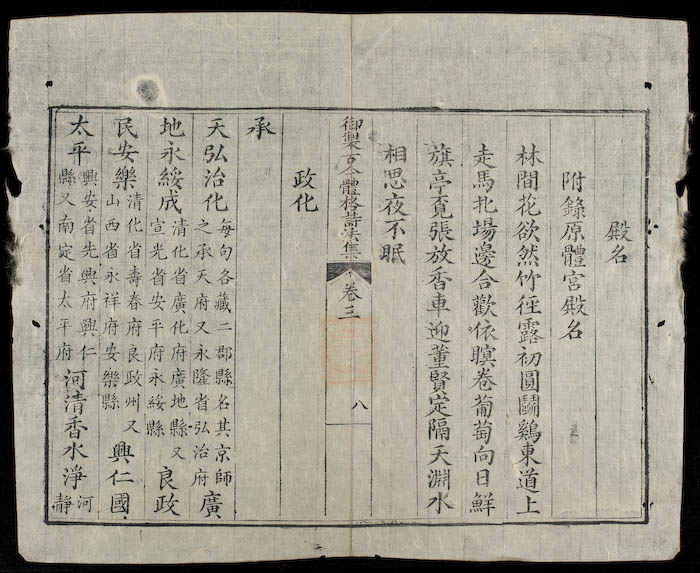 殿名
附錄原體宮殿名
林間花欲然竹徑露初圓鬪鷄東道上
走馬北場邊合歡依暝卷葡萄向日鮮
旗亭覔張放香車迎董賢定隔天淵水
相思夜不眠
御製古今體格詩法集 卷三 八
政化
承
天弘治化每句各藏二郡縣名其京師之承天府又永隆省弘治府廣
地永綏成清化省廣化府廣地縣又宣光省安平府永綏縣良政
民安樂清化省壽春府良政州又山西省永祥府安樂縣興仁國
太平興安省先興府興仁縣又南定省太平府河清香水淨河靜